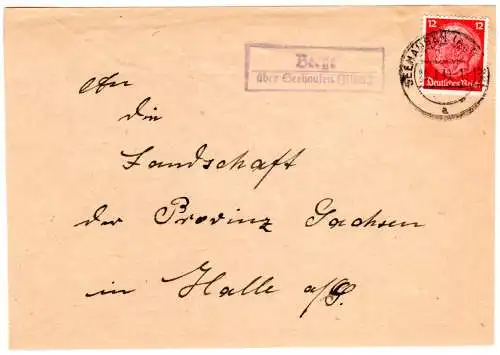 12 12
Deutsches Reich
SEEHAUSEN
a
Berge
über Seehausen (Altm.)
An
die
Landschaft
der Provinz Sachsen
in Halle a/S.